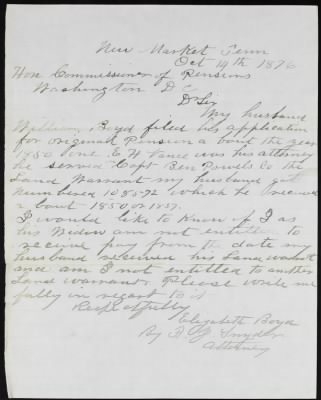 New Market Tenn
Oct 14th 1896
Hon Commissioner of Pensions
Washington D C
D Sir
My husband
William Boyd filed his application
for original Pension a bout the year
1850 one E H Vance was his attorney
he served Capt Ben Powels Co the
Land Warrant my husband got
numbered 108572 which he
a bout 1850 or 1857.
I would like to know if I as
his Widow am not entitled to
receive pay from the date my
husband received his Land
and am I not entitled to another
Land warrant Please write me
fully in regard to it
Respectfully
Elizabeth Boyd
By Snyder
Attorney